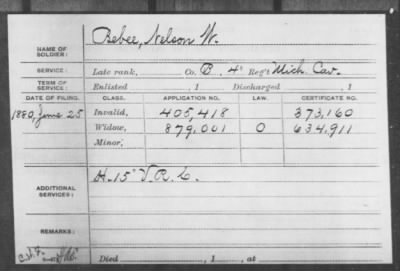 Bebee, Nelson W.
NAME OF
SOLDIER:
SERVICE: Late rank, Co. B, 4" Reg't Mich. Cav.
TERM OF
SERVICE: Enlisted , 1 Discharged , 1
DATE OF FILING. CLASS. APPLICATION NO. LAW. CERTIFICATE NO.
1880, June 25 Invalid, 405,418 373,160
Widow, 879,001 O 634,911
Minor,
H. 15" V.R.C.
ADDITIONAL
SERVICES:
REMARKS:
Died , 1 , at